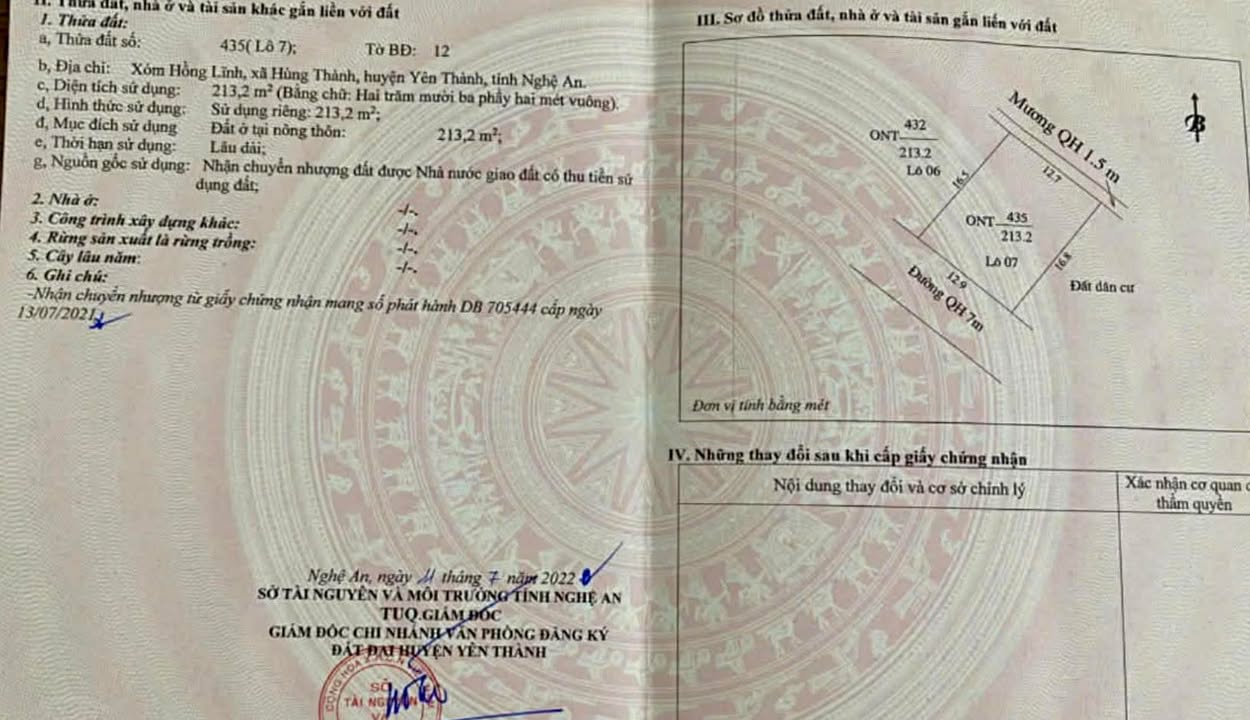 II. Thửa đất, nhà ở và tài sản khác gắn liền với đất
1. Thửa đất:
a, Thửa đất số: 435( Lô 7); Tờ BĐ: 12
b, Địa chỉ: Xóm Hồng Lĩnh, xã Hùng Thành, huyện Yên Thành, tỉnh Nghệ An.
c, Diện tích sử dụng: 213,2 m² (Bằng chữ: Hai trăm mười ba phẩy hai mét vuông).
d, Hình thức sử dụng: Sử dụng riêng: 213,2 m²;
đ, Mục đích sử dụng Đất ở tại nông thôn: 213,2 m²;
e, Thời hạn sử dụng: Lâu dài;
g, Nguồn gốc sử dụng: Nhận chuyển nhượng đất được Nhà nước giao đất có thu tiền sử
dụng đất;
2. Nhà ở: -/-.
3. Công trình xây dựng khác: -/-.
4. Rừng sản xuất là rừng trồng: -/-.
5. Cây lâu năm: -/-.
6. Ghi chú:
-Nhận chuyển nhượng từ giấy chứng nhận mang số phát hành DB 705444 cấp ngày
13/07/2021.
Nghệ An, ngày 11 tháng 7 năm 2022
SỞ TÀI NGUYÊN VÀ MÔI TRƯỜNG TỈNH NGHỆ AN
TUQ.GIÁM ĐỐC
GIÁM ĐỐC CHI NHÁNH VĂN PHÒNG ĐĂNG KÝ
ĐẤT ĐAI HUYỆN YÊN THÀNH
SỞ
TÀI NGUYÊN
VÀ
III. Sơ đồ thửa đất, nhà ở và tài sản gắn liền với đất
B
Mương QH 1.5 m
ONT 432
213.2
Lô 06
16.5
12.7
ONT 435
213.2
Lô 07
16.8
12.9
Đường QH 7m
Đất dân cư
Đơn vị tính bằng mét
IV. Những thay đổi sau khi cấp giấy chứng nhận
Nội dung thay đổi và cơ sở chỉnh lý
Xác nhận cơ quan c
thẩm quyền